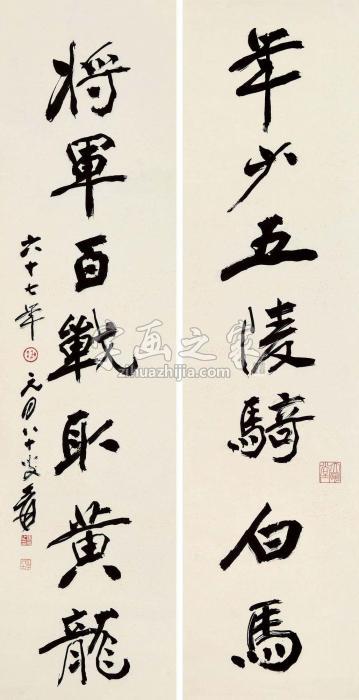 年少五陵騎白馬
將軍百戰取黃龍
六十七年
元月八十叟爰
字画之家
zihuazhijia.com